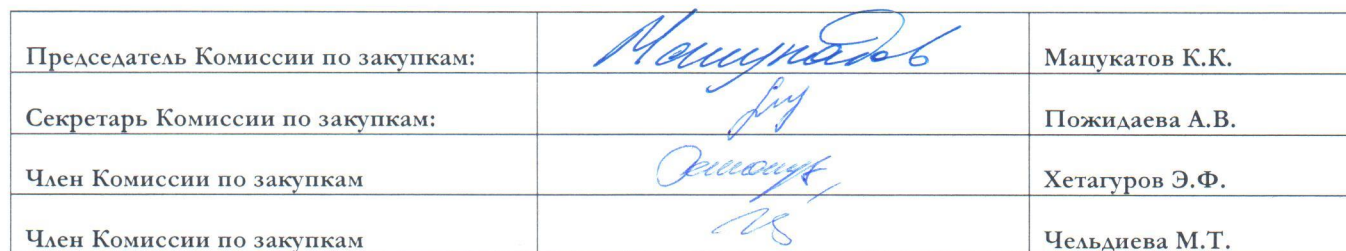 Председатель Комиссии по закупкам: Мацукатов К.К.
Секретарь Комиссии по закупкам: Пожидаева А.В.
Член Комиссии по закупкам Хетагуров Э.Ф.
Член Комиссии по закупкам Чельдиева М.Т.